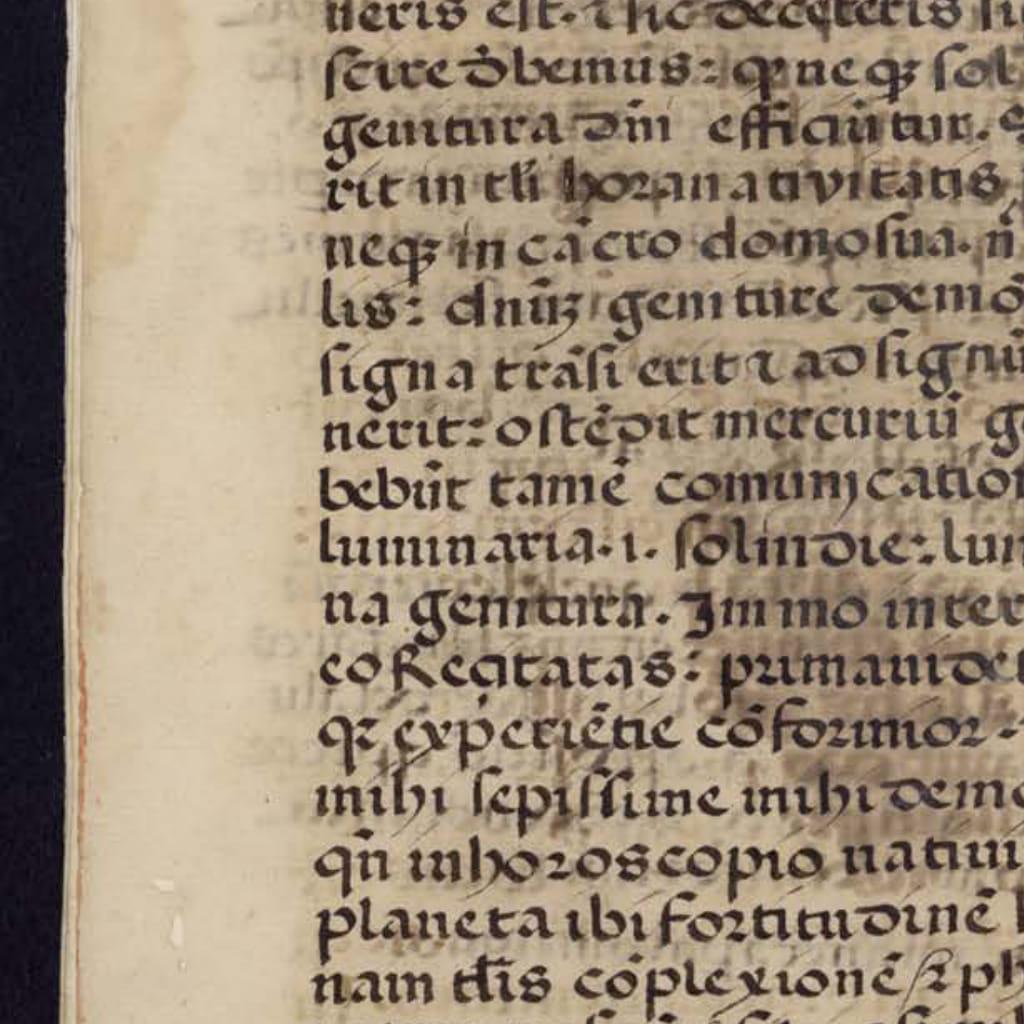 neris est. ⁊ sic deceteris si
scire d̄bemus: qꝛ neqꝫ sol
genitura dn̄i efficiūtur.
rit in tʼli hora nativitatis
neqꝫ in cācro domo sua. n̄
lis: dnūꝫ geniture demō
signa trāsierit ⁊ ad signū
nerit: ostēdit mercuriū ge
bebūt tamē comunjcation
luminaria. i. sol in die: lun
na genitura. Immo inter
eo Recitatas: primaui de
qꝛ experiētie cōformior
mihi sepissime mihi demo
qn̄ in horoscopio natiui
planeta ibi fortitudinē
nam tal̄is cōplexionē ph